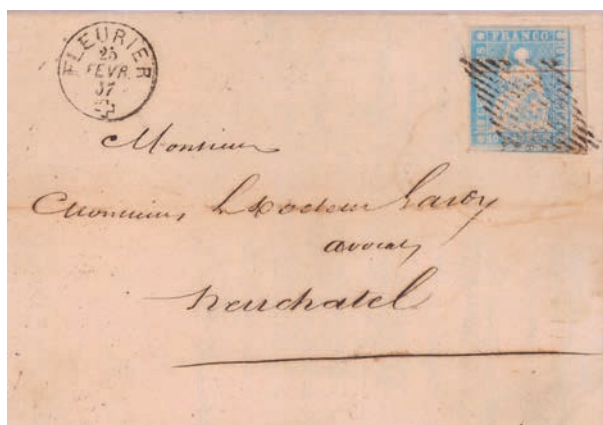 FLEURIER
25
FEVR.
57
FRANCO
Monsieur
Monsieur le Docteur
avocat
Neuchatel